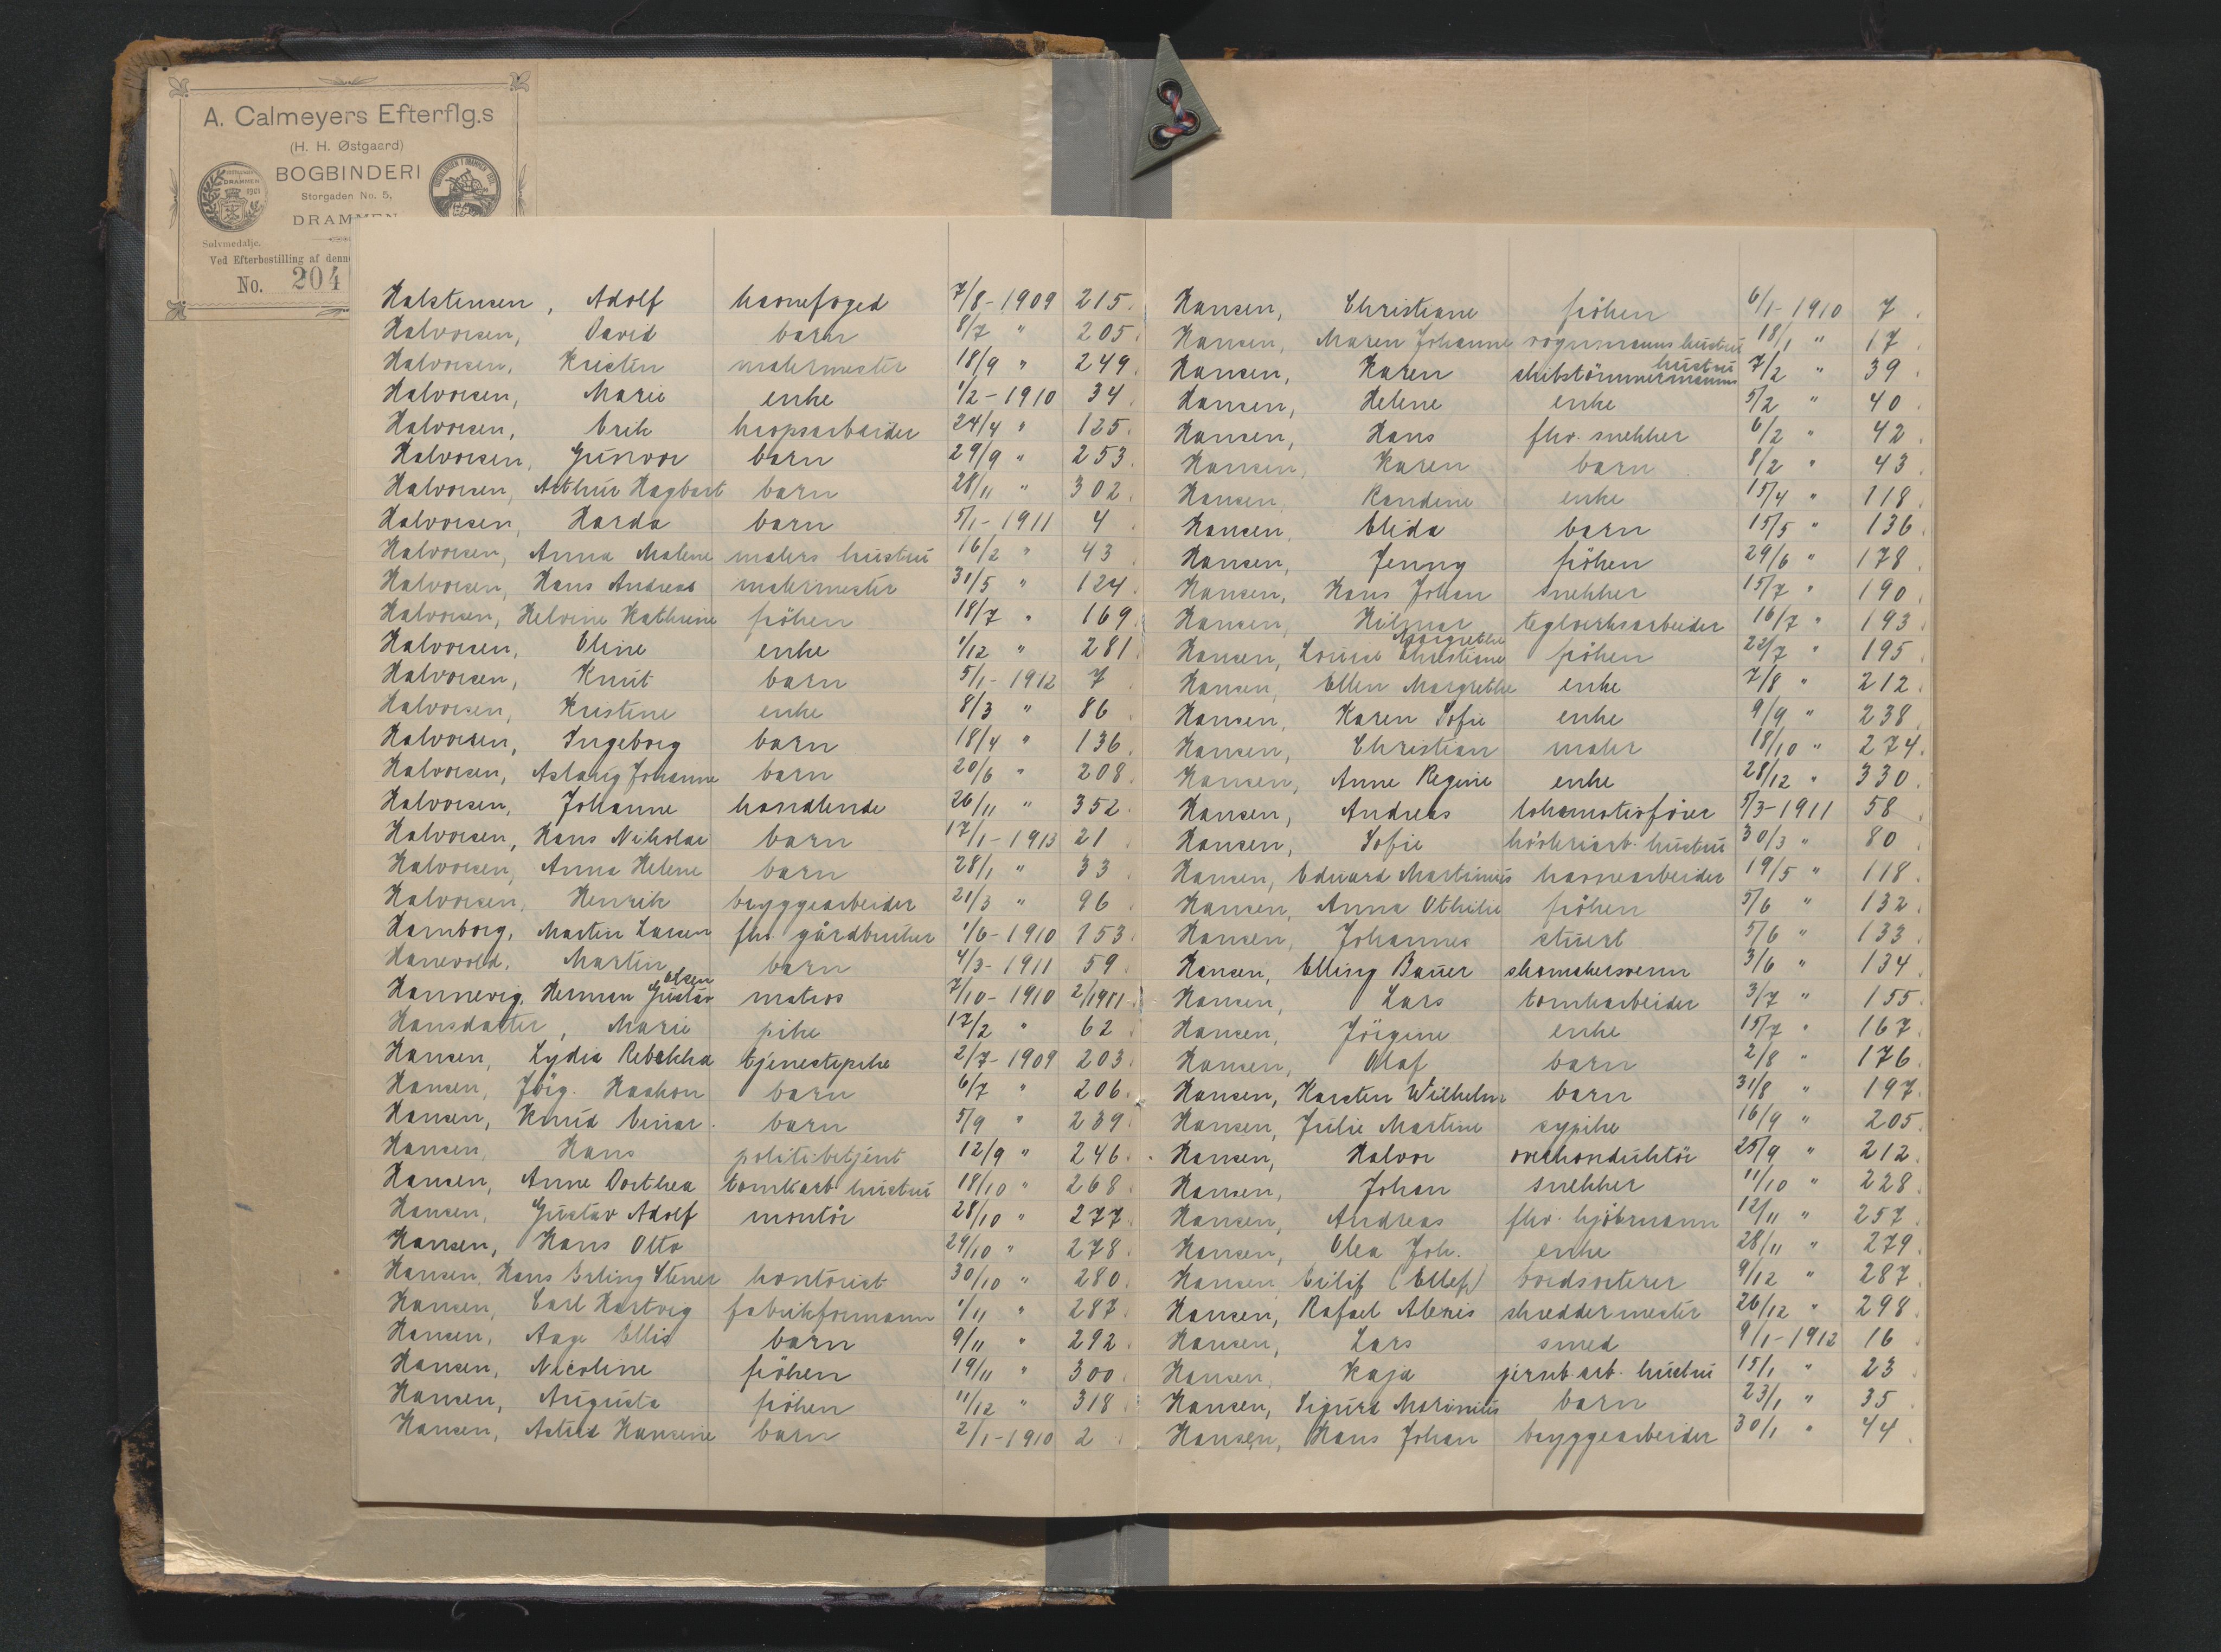 A. Calmeyers Efterflg.s
(H. H. Østgaard)
BOGBINDERI
Storgaden No. 5,
DRAMMEN
Sølvmedalje.
Ved Efterbestilling af denn
No. 204
Halstensen, Adolf havnefoged 7/8-1909 215.
Halvorsen, David barn 8/7 " 205.
Halvorsen, Kristen malermester 18/9 " 249.
Halvorsen, Marie enke 1/2-1910 34.
Halvorsen, Erik havnarbeider 24/4 " 125.
Halvorsen, Gunvor barn 29/9 " 253.
Halvorsen, Arthur Hagbart barn 28/11 " 302.
Halvorsen, Harda barn 5/1-1911 4.
Halvorsen, Anna Malene malers hustru 16/2 " 43
Halvorsen, Hans Andreas malermester 31/5 " 124.
Halvorsen, Helvine Kathrine fröken 18/7 " 169.
Halvorsen, Oline enke 1/12 " 281
Halvorsen, Knut barn 5/1-1912 7
Halvorsen, Kristine enke 8/3 " 86
Halvorsen, Ingeborg barn 18/4 " 136.
Halvorsen, Aslaug Johanne barn 20/6 " 208.
Halvorsen, Johanne handlende 26/11 " 352.
Halvorsen, Hans Nikolai barn 17/1-1913 21
Halvorsen, Anna Helene barn 28/1 " 33
Halvorsen, Henrik bryggearbeider 21/3 " 96
Hamborg, Martin Larsen fhv. gårdbruker 1/6-1910 153.
Hanevold, Martin barn 4/3-1911 59.
Hannevig, Herman Gustav Olsen matros 7/10-1910 2/1911.
Hansdatter, Marie pike 17/2 " 62
Hansen, Lydia Rebekka tjenestepike 2/7-1909 203.
Hansen, Jörg. Haakon barn 6/7 " 206.
Hansen, Knud Einar. barn 5/9 " 239.
Hansen, Hans politibetjent 12/9 " 246.
Hansen, Anne Dorthea tomtearb. hustru 18/10 " 268.
Hansen, Gustav Adolf montör 28/10 " 277.
Hansen, Hans Otto 29/10 " 278.
Hansen, Hans Erling Stener kontorist 30/10 " 280.
Hansen, Carl Hartvig fabrikformann 1/11 " 287.
Hansen, Aage Ellis barn 9/11 " 292.
Hansen, Nicoline fröken 19/11 " 300.
Hansen, Augusta fröken 11/12 " 318.
Hansen, Astrid Hansine barn 2/1-1910 2
Hansen, Christiane fröken 6/1-1910 7.
Hansen, Maren Johanne vognmanns hustru 18/1 " 17.
Hansen, Karen skibstömmermanns hustru 7/2 " 39.
Hansen, Helene enke 5/2 " 40.
Hansen, Hans fhv. snekker 6/2 " 42.
Hansen, Karen barn 8/2 " 43.
Hansen, Randine enke 15/4 " 118.
Hansen, Elida barn 15/5 " 136.
Hansen, Jenny fröken 29/6 " 178.
Hansen, Hans Johan snekker 15/7 " 190.
Hansen, Hilmar teglverksarbeider 16/7 " 193.
Hansen, Louise Christiane Margrethe fröken 22/7 " 195.
Hansen, Ellen Margrethe enke 7/8 " 212.
Hansen, Karen Sofie enke 9/9 " 238
Hansen, Christian maler 18/10 " 274.
Hansen, Anne Regine enke 28/12 " 330.
Hansen, Andreas lokomotivförer 5/3-1911 58.
Hansen, Sofie 30/3 " 80
Hansen, Edvard Martinius havnearbeider 19/5 " 118.
Hansen, Anna Othilie fröken 5/6 " 132.
Hansen, Johannes stuert 5/6 " 133.
Hansen, Elling Bauer skomakersvenn 3/6 " 134.
Hansen, Lars tomtearbeider 3/7 " 155.
Hansen, Jörgine enke 15/7 " 167.
Hansen, Olaf barn 2/8 " 176.
Hansen, Karsten Wilhelm barn 31/8 " 197.
Hansen, Julie Martine sypike 16/9 " 205.
Hansen, Halvor overkonduktör 25/9 " 212.
Hansen, Johan snekker 11/10 " 228.
Hansen, Andreas fhv. kjöbmann 12/11 " 257.
Hansen, Olea Joh. enke 28/11 " 279.
Hansen Eilif (Ellef) bordsorterer 9/12 " 287.
Hansen, Rafael Alexis skreddermester 26/12 " 298.
Hansen, Lars smed 9/1-1912 16.
Hansen, Kaja jernb.arb. hustru 15/1 " 23.
Hansen, Sigurd Marinius barn 23/1 " 35.
Hansen, Hans Johan bryggearbeider 30/1 " 44.